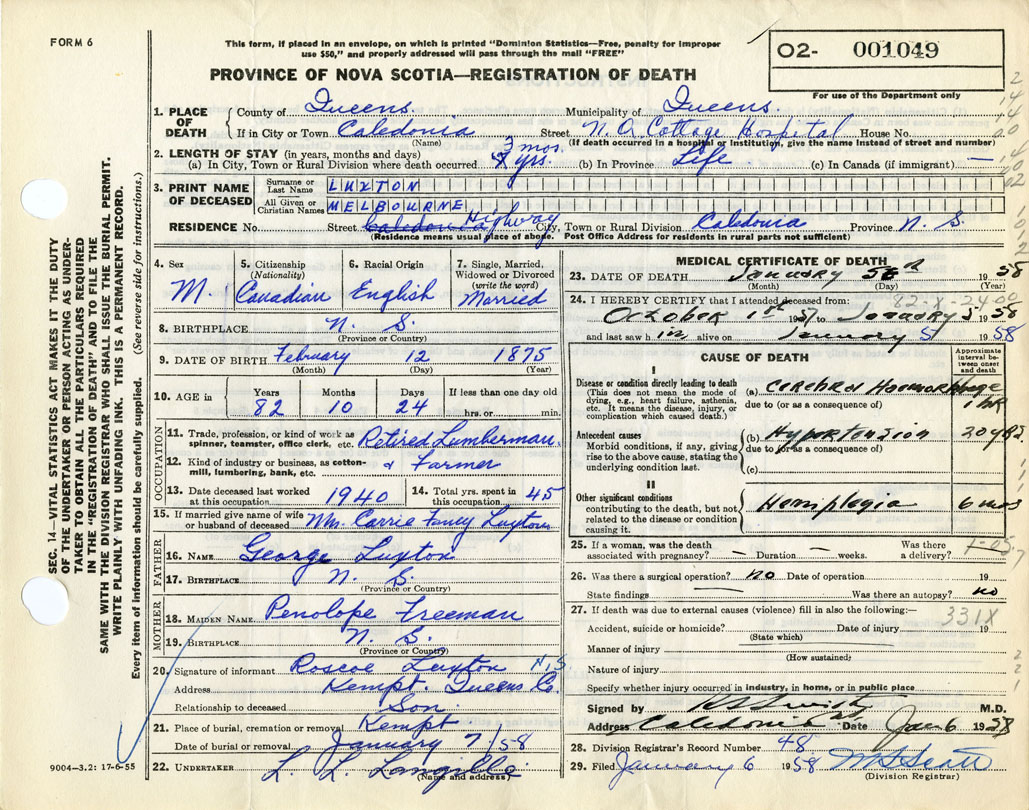 FORM 6
This form, if placed in an envelope, on which is printed "Dominion Statistics—Free, penalty for improper
use $50," and properly addressed will pass through the mail "FREE"
PROVINCE OF NOVA SCOTIA—REGISTRATION OF DEATH
O2- 001049
For use of the Department only
1. PLACE OF DEATH { County of Queens Municipality of Queens.
If in City or Town Caledonia Street N. Q. Cottage Hospital House No.
(Name) (If death occurred in a hospital or Institution, give the name instead of street and number)
2. LENGTH OF STAY (in years, months and days) 3 mos.
(a) In City, Town or Rural Division where death occurred yrs. (b) In Province Life (c) In Canada (if immigrant) —
3. PRINT NAME OF DECEASED { Surname or Last Name LUXTON
All Given or Christian Names MELBOURNE
RESIDENCE No. Street Caledonia Highway City, Town or Rural Division Caledonia Province N. S.
(Residence means usual place of abode. Post Office Address for residents in rural parts not sufficient)
4. Sex M.
5. Citizenship (Nationality) Canadian
6. Racial Origin English
7. Single, Married, Widowed or Divorced (write the word) Married
8. BIRTHPLACE N. S.
(Province or Country)
9. DATE OF BIRTH February 12 1875
(Month) (Day) (Year)
10. AGE in Years 82 Months 10 Days 24 If less than one day hrs. or min.
OCCUPATION
11. Trade, profession, or kind of work as spinner, teamster, office clerk, etc. Retired Lumberman
12. Kind of industry or business, as cotton-mill, lumbering, bank, etc. & Farmer
13. Date deceased last worked at this occupation 1940
14. Total yrs. spent in this occupation 45
15. If married give name of wife or husband of deceased Mrs. Carrie Fancy Luxton
FATHER
16. NAME George Luxton
17. BIRTHPLACE N. S.
(Province or Country)
MOTHER
18. MAIDEN NAME Penolope Freeman
19. BIRTHPLACE N. S.
(Province or Country)
20. Signature of informant Roscoe Luxton
Address Kempt. Queens Co. N.S.
Relationship to deceased Son.
21. Place of burial, cremation or removal Kempt
Date of burial or removal January 7/58
22. UNDERTAKER L. L. Langille
(Name and address)
9004—3.2: 17-6-55
MEDICAL CERTIFICATE OF DEATH
23. DATE OF DEATH January 5th 1958
(Month) (Day) (Year)
82-X-2400
24. I HEREBY CERTIFY that I attended deceased from:
October 1st 1957 to January 5 1958
and last saw him alive on January 5 1958
CAUSE OF DEATH
Approximate interval between onset and death
I
Disease or condition directly leading to death
(This does not mean the mode of dying, e.g., heart failure, asthenia, etc. It means the disease, injury, or complication which caused death.)
(a) Cerebral Haemorrhage 1 hr
due to (or as a consequence of)
Antecedent causes
Morbid conditions, if any, giving rise to the above cause, stating the underlying condition last.
(b) Hypertension 20 yrs
due to (or as a consequence of)
(c)
II
Other significant conditions
contributing to the death, but not related to the disease or condition causing it.
Hemiplegia 6 mos
25. If a woman, was the death associated with pregnancy? — Duration — weeks. Was there a delivery?
26. Was there a surgical operation? no Date of operation 19
State findings — Was there an autopsy? no
27. If death was due to external causes (violence) fill in also the following:—
331X
Accident, suicide or homicide? Date of injury 19
(State which)
Manner of injury
(How sustained)
Nature of injury
Specify whether injury occurred in industry, in home, or in public place
Signed by M.D.
Address Caledonia NS Date Jan 6 1958
28. Division Registrar's Record Number 48
29. Filed January 6 1958
(Division Registrar)
SEC. 14—VITAL STATISTICS ACT MAKES IT THE DUTY
OF THE UNDERTAKER OR PERSON ACTING AS UNDER-
TAKER TO OBTAIN ALL THE PARTICULARS REQUIRED
IN THE "REGISTRATION OF DEATH" AND TO FILE THE
SAME WITH THE DIVISION REGISTRAR WHO SHALL ISSUE THE BURIAL PERMIT.
WRITE PLAINLY WITH UNFADING INK. THIS IS A PERMANENT RECORD.
Every item of information should be carefully supplied. (See reverse side for instructions.)